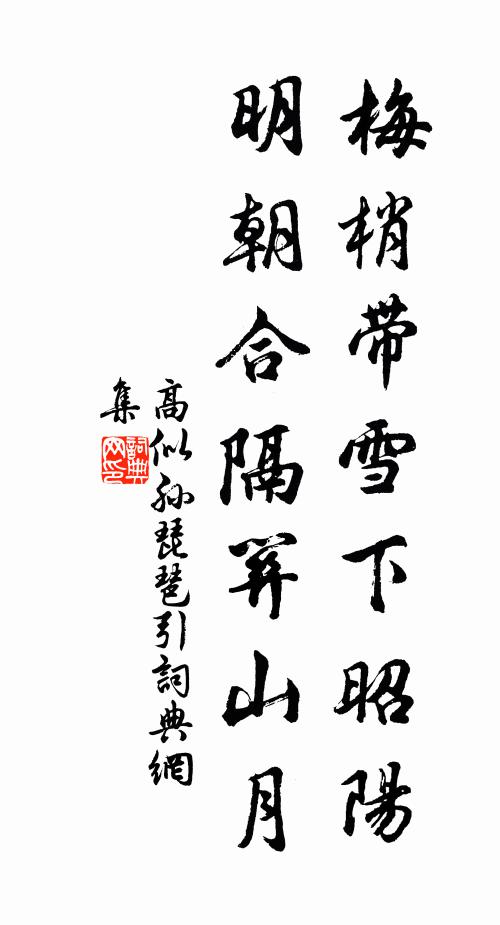 梅梢带雪下昭陽
明朝合隔關山月
高似孫琵琶引詞典網
集
詞典網印